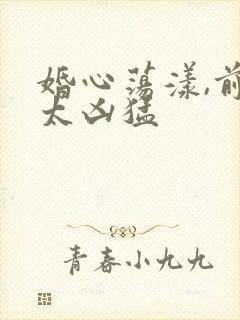 婚心荡漾,前
太凶猛
青春小九九